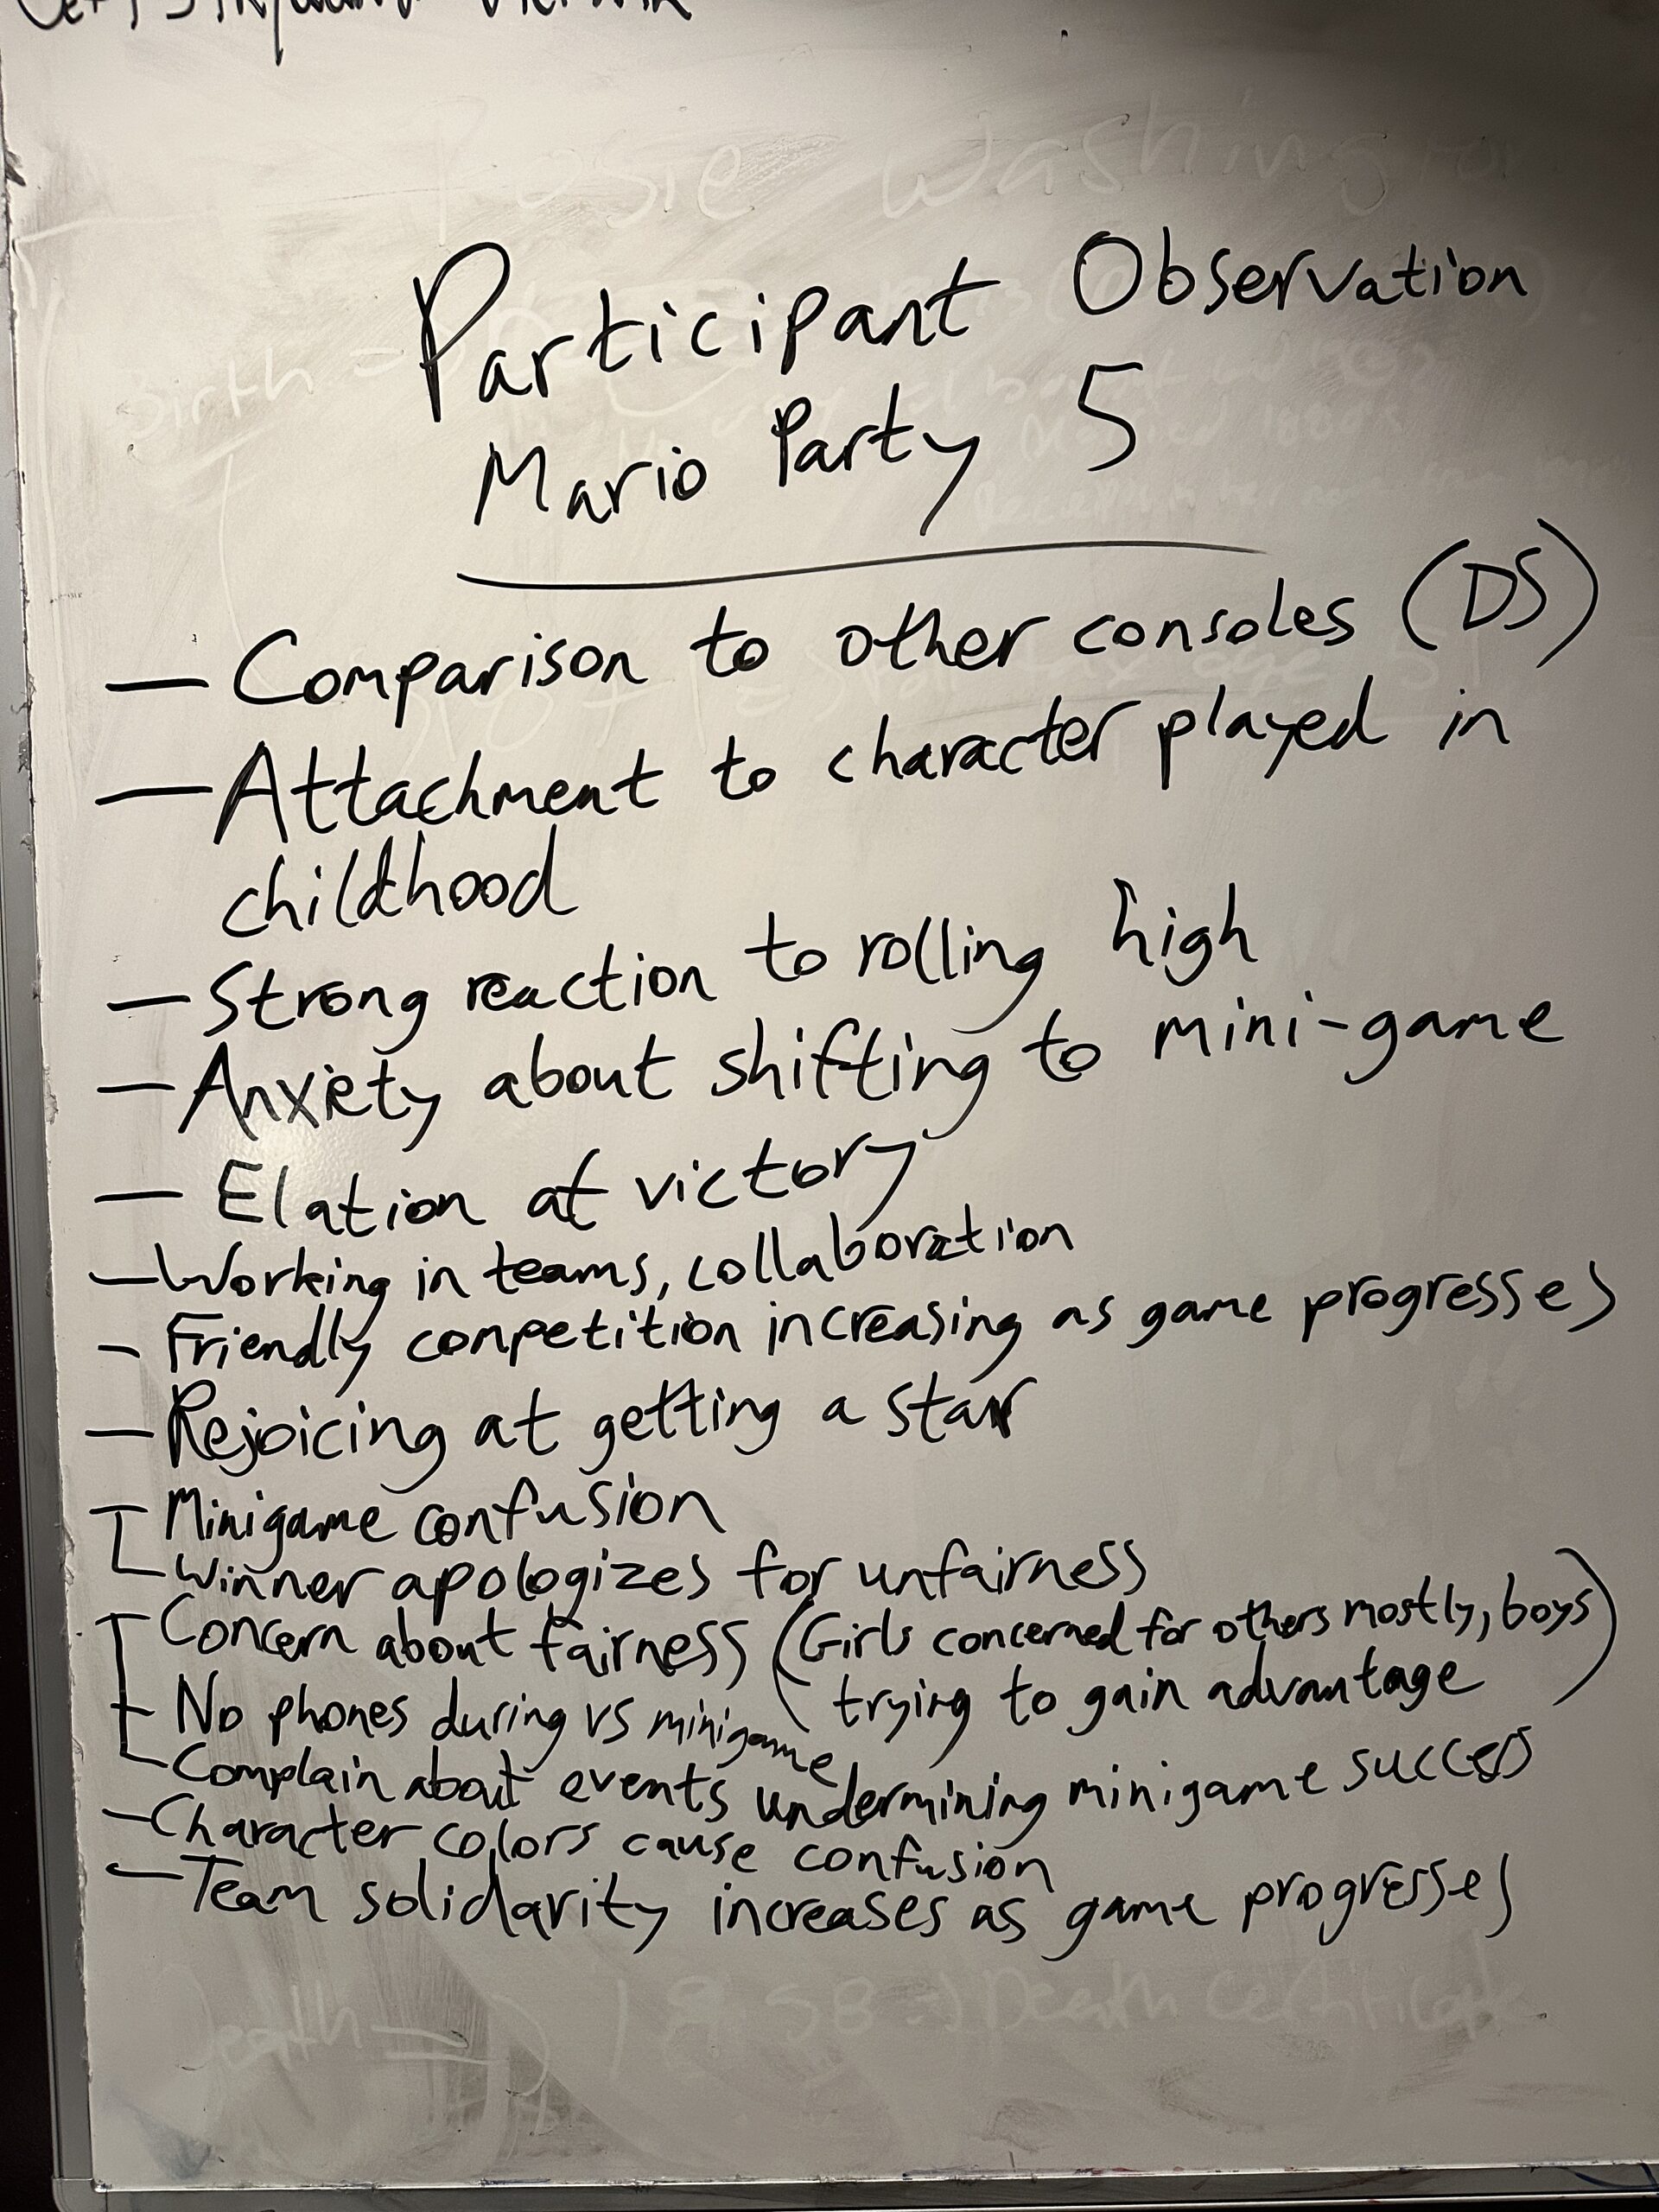 Participant Observation
Mario Party 5
— Comparison to other consoles (DS)
— Attachment to character played in
childhood
— Strong reaction to rolling high
— Anxiety about shifting to mini-game
— Elation at victory
— Working in teams, collaboration
- Friendly competition increasing as game progresses
— Rejoicing at getting a star
- Minigame confusion
- Winner apologizes for unfairness
- Concern about fairness (Girls concerned for others mostly, boys
trying to gain advantage)
- No phones during vs minigame
- Complain about events undermining minigame success
- Character colors cause confusion
- Team solidarity increases as game progresses
Rosie Washington
Birth
Death → 1958 → Death Certificate